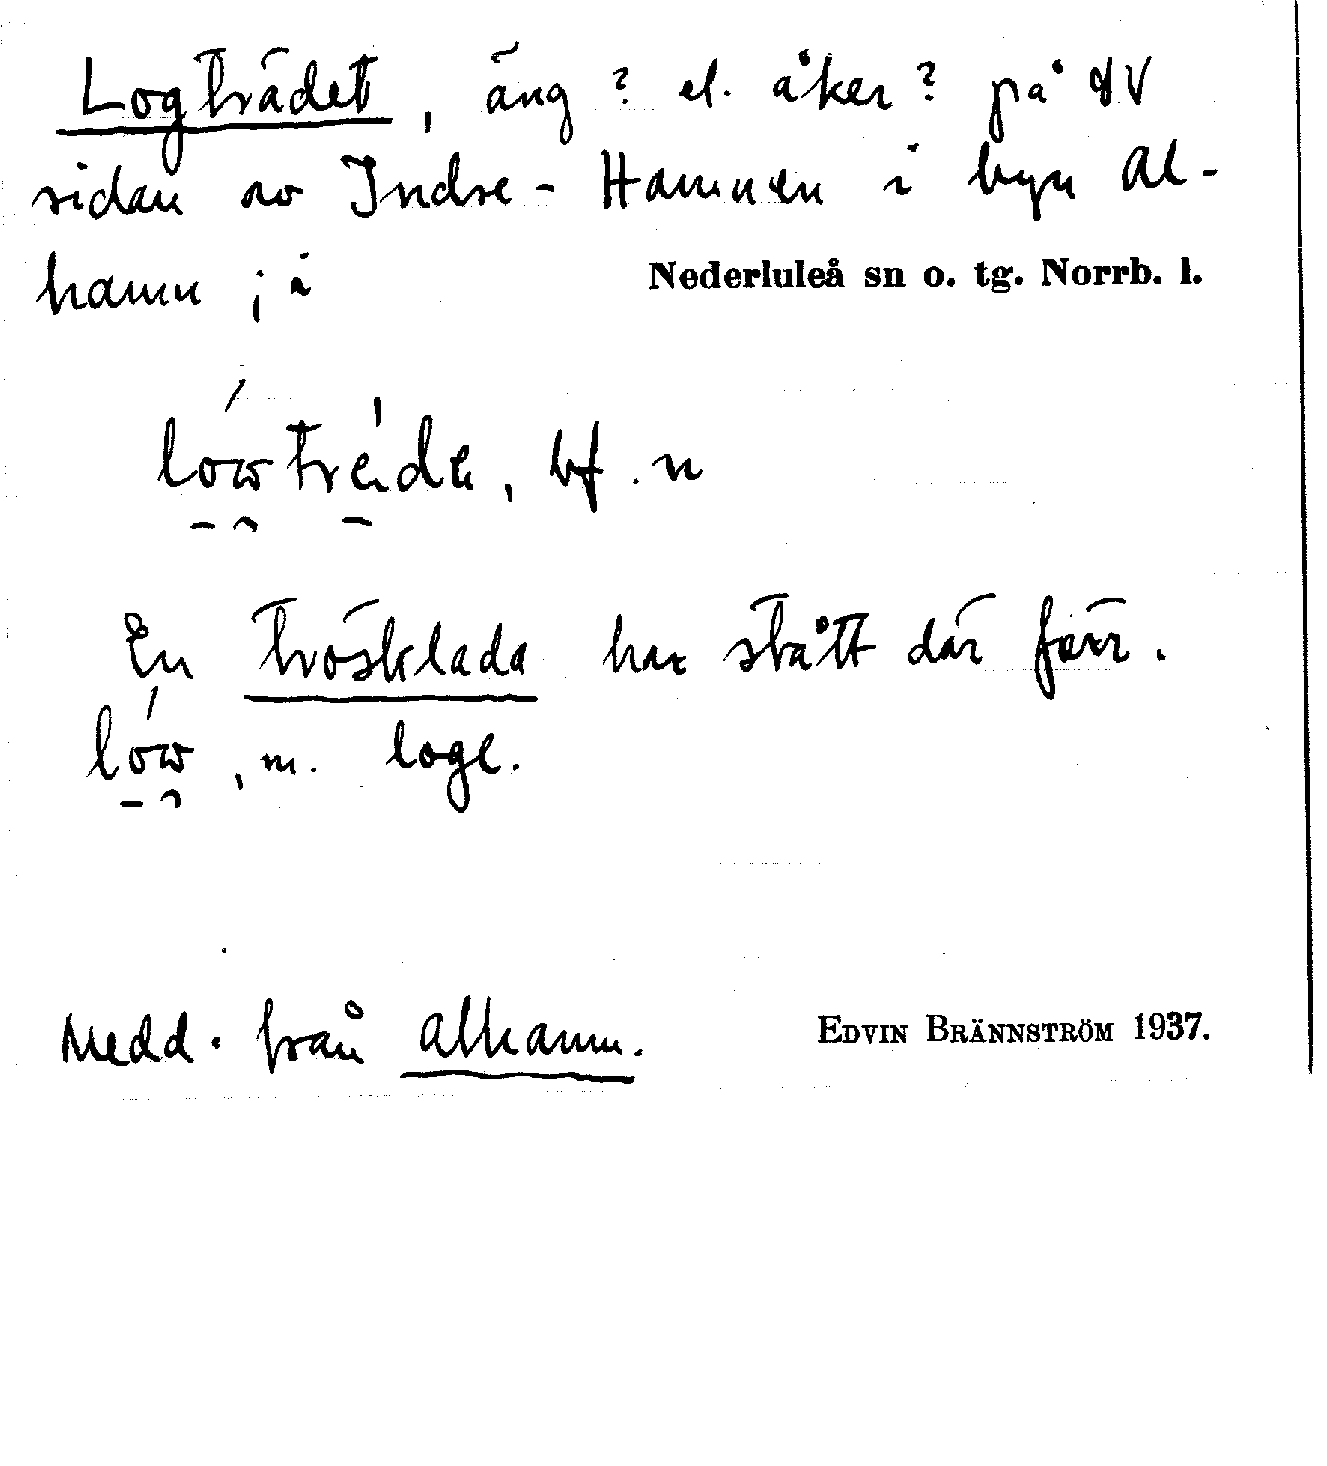 Logträdet, äng? el. åker? på NV
sidan av Indre-Hamnen i byn Al-
hamn; i Nederluleå sn o. tg. Norrb. l.
lówtréide, bf. n
En trösklada har stått där förr.
lów, m. loge.
Medd. från Alhamn. EDVIN BRÄNNSTRÖM 1937.